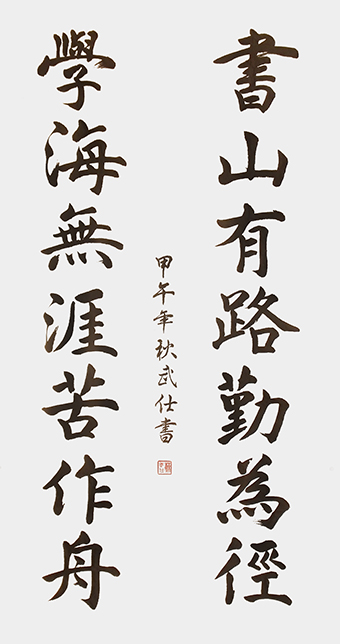 書山有路勤為徑
學海無涯苦作舟
甲午年秋武仕書